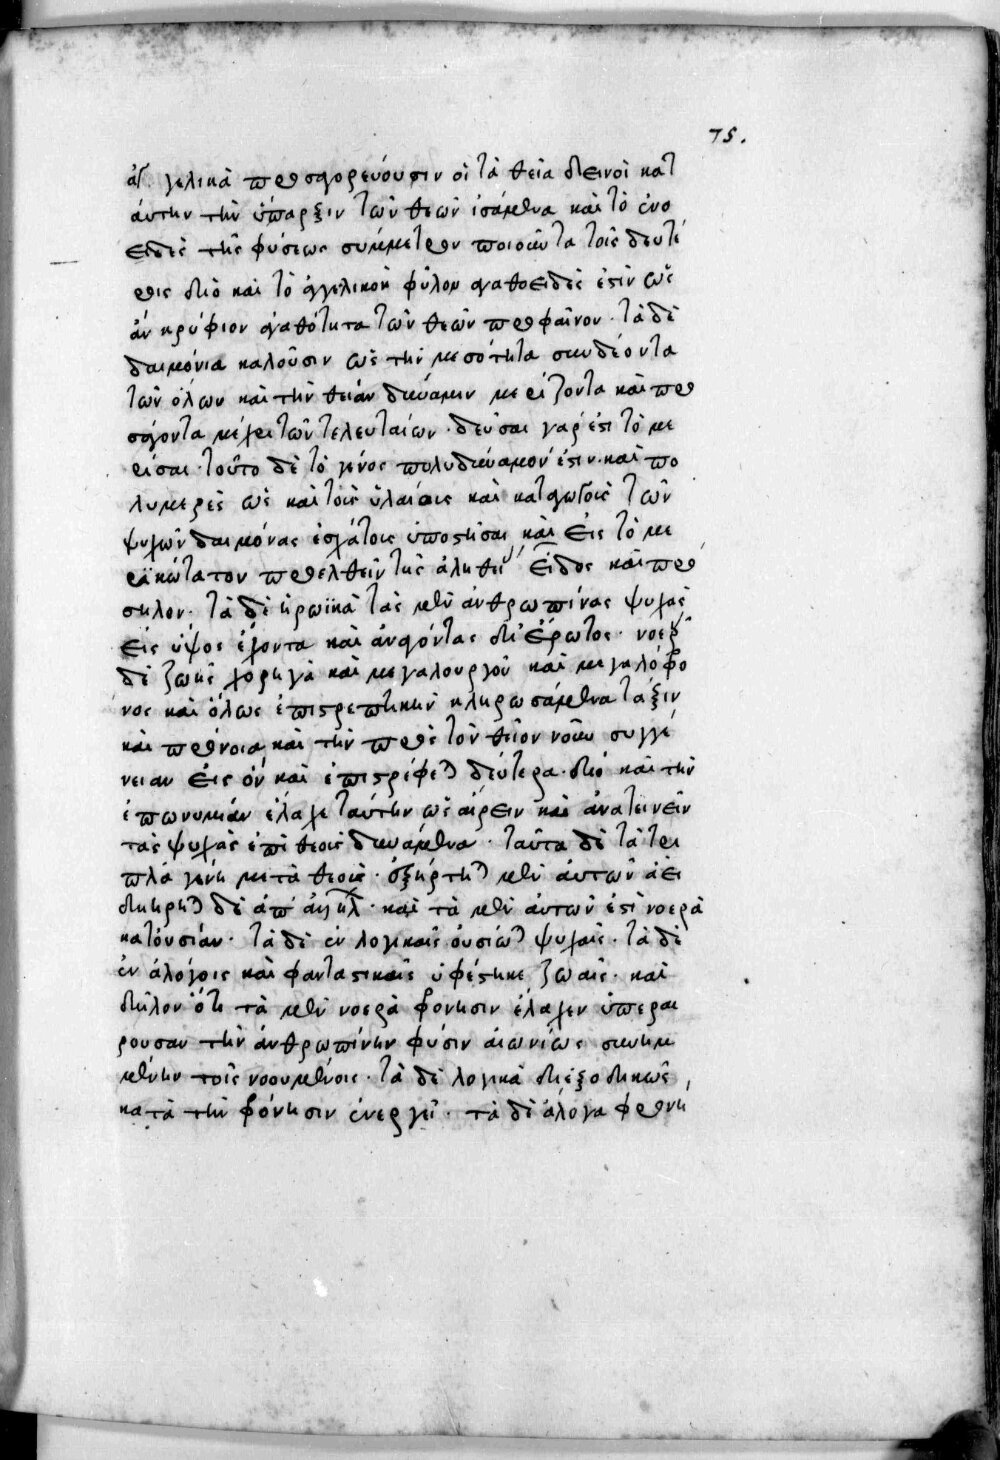 75.
ἀγγελικὰ προσαγορεύουσιν οἱ τὰ θεῖα δεινοὶ κατ
αὐτὴν τὴν ὕπαρξιν τῶν θεῶν ἱστάμενα καὶ τὸ ἑνο
ειδὲς τῆς φύσεως σύμμετρον ποιοῦντα τοῖς δευτέ
ροις διὸ καὶ τὸ ἀγγελικὸν φῦλον ἀγαθοειδές ἐστὶν ὡς
ἂν κρύφιον ἀγαθότητα τῶν θεῶν προφαῖνον. τὰ δὲ
δαιμόνια καλοῦσιν ὡς τὴν μεσότητα συνδέοντα
τῶν ὅλων καὶ τὴν θείαν δύναμιν μερίζοντα καὶ προ
σάγοντα μέχρι τῶν τελευταίων. δεῦσαι γάρ ἐστι τὸ με
ρίσαι. τοῦτο δὲ τὸ γένος πολυδύναμόν ἐστιν. καὶ πο
λυμερὲς ὡς καὶ τοῖς ὑλαίοις καὶ καταγωγοῖς τῶν
ψυχῶν δαίμονας ἐσχάτοις ὑποστῆσαι καὶ εἰς τὸ με
ρικώτατον προελθεῖν τῆς εἶδος καὶ πρό
σηλον. τὰ δὲ ἡρωϊκὰ τὰς μὲν ἀνθρωπίνας ψυχὰς
εἰς ὕψος ἔχοντα καὶ ἀνάγοντας δι' ἔρωτος. νοερᾶς
δὲ ζωῆς χορηγὰ καὶ μεγαλουργοῦ καὶ μεγαλόφρο
νος καὶ ὅλως ἐπιστρεπτικὴν κληρωσάμενα τάξιν
καὶ πρόνοιαν καὶ τὴν πρὸς τὸν θεῖον νοῦν συγγέ
νειαν εἰς ὃν καὶ ἐπιστρέφει δεύτερα. διὸ καὶ τὴν
ἐπωνυμίαν ἔλαχε ταύτην ὡς αἴρειν καὶ ἀνατείνειν
τὰς ψυχὰς ἐπὶ θεοὺς δυνάμενα. ταῦτα δὲ τὰ τρι
πλᾶ γένη μετὰ θεοὺς. ἐξήρτηται μὲν αὐτῶν ἀεὶ
διῄρηται δὲ ἀπ' ἀλλήλων. καὶ τὰ μὲν αὐτῶν ἐστὶ νοερὰ
κατ' οὐσίαν. τὰ δὲ ἐν λογικαῖς οὐσίωται ψυχαῖς. τὰ δὲ
ἐν ἀλόγοις καὶ φανταστικαῖς ὑφέστηκε ζωαῖς. καὶ
δῆλον ὅτι τὰ μὲν νοερὰ φρόνησιν ἔλαχεν ὑπεραί
ρουσαν τὴν ἀνθρωπίνην φύσιν αἰωνίως συνημ
μένην τοῖς νοουμένοις. τὰ δὲ λογικὰ διεξοδικῶς
κατὰ τὴν φρόνησιν ἐνεργεῖ. τὰ δὲ ἄλογα φρονή